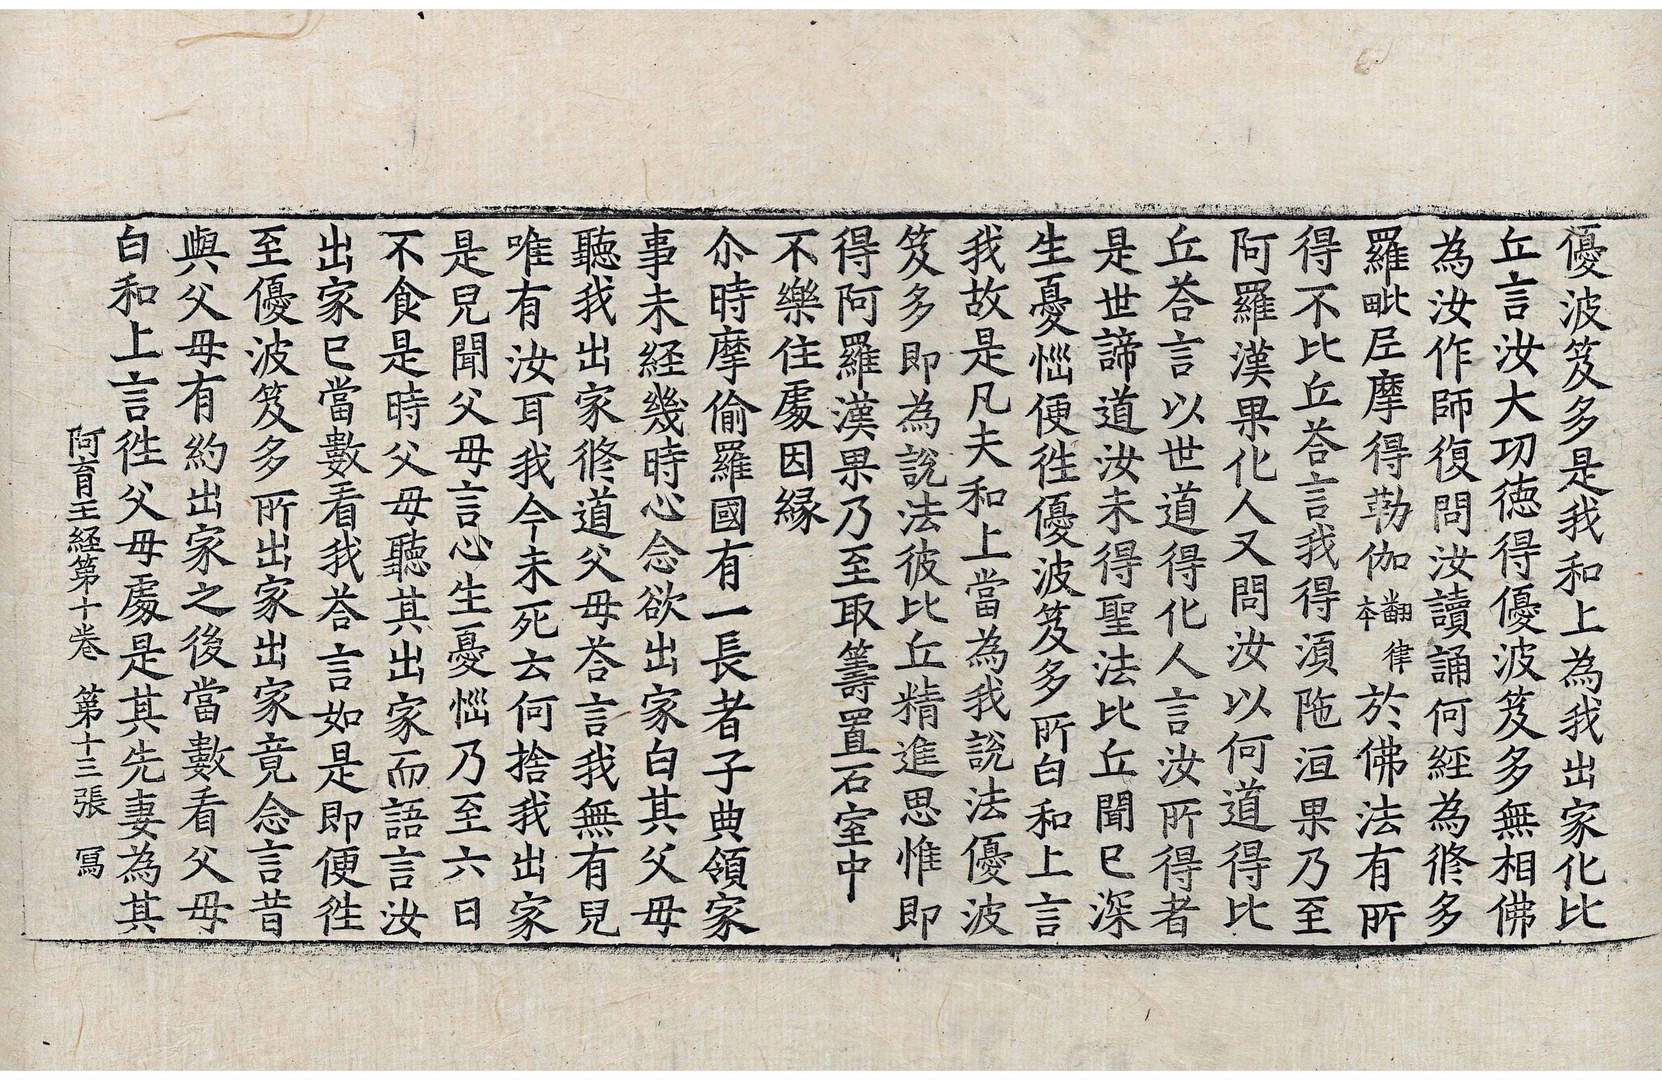 優波笈多是我和上為我出家化比
丘言汝大功徳得優波笈多無相佛
為汝作師復問汝讀誦何經為修多
羅毗尼摩得勒伽翻律本於佛法有所
得不比丘荅言我得湏陁洹果乃至
阿羅漢果化人又問汝以何道得比
丘荅言以世道得化人言汝所得者
是世諦道汝未得聖法比丘聞已深
生憂惱便徃優波笈多所白和上言
我故是凡夫和上當為我說法優波
笈多即為說法彼比丘精進思惟即
得阿羅漢果乃至取籌置石室中
不樂住處因緣
尒時摩偷羅國有一長者子典領家
事未経幾時心念欲出家白其父母
聽我出家修道父母荅言我無有兒
唯有汝耳我今未死云何捨我出家
是兒聞父母言心生憂惱乃至六日
不食是時父母聽其出家而語言汝
出家已當數看我荅言如是即便徃
至優波笈多所出家出家竟念言昔
與父母有約出家之後當數看父母
白和上言徃父母處是其先妻為其
阿育王経第十卷 第十三張 冩